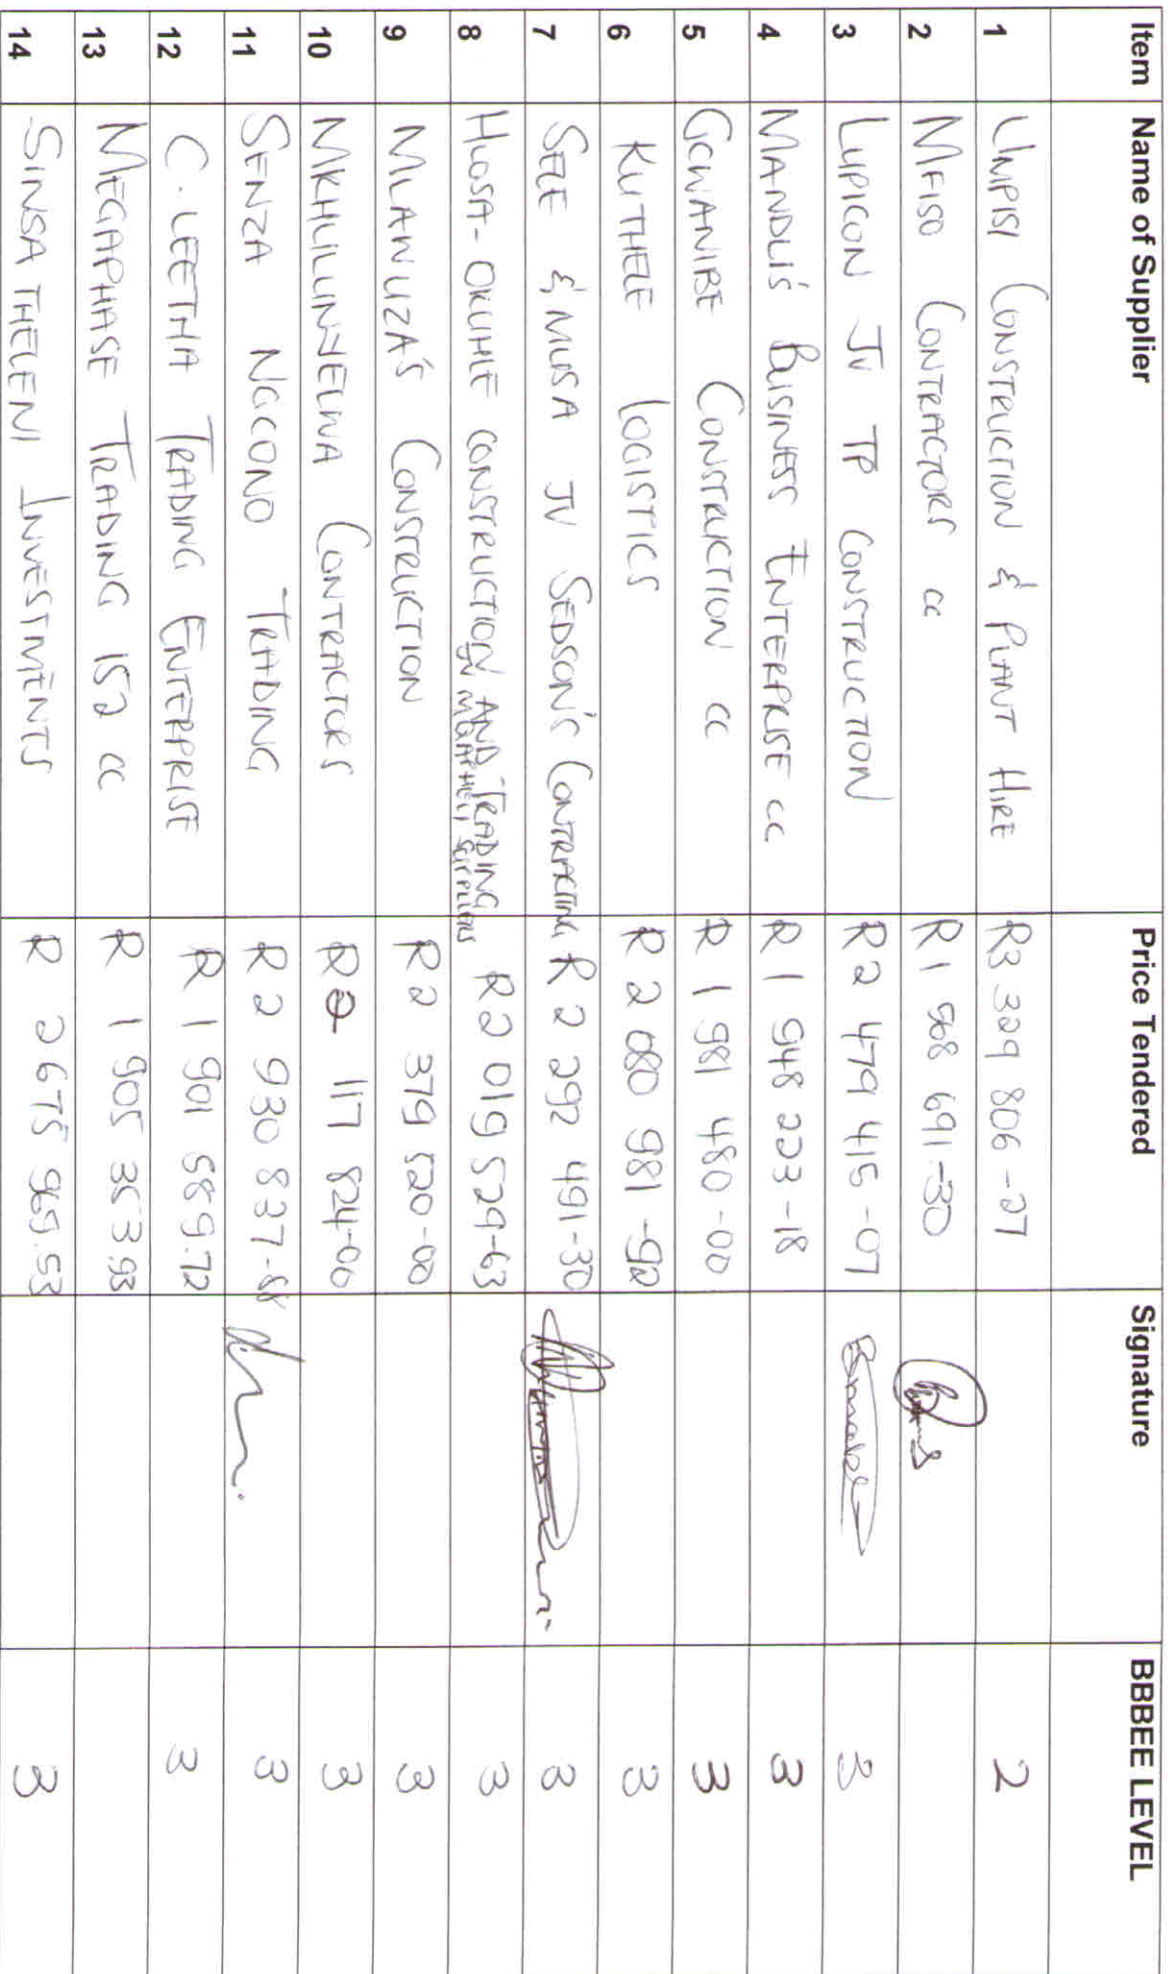 Item Name of Supplier Price Tendered Signature BBBEE LEVEL
1 UMPISI CONSTRUCTION & PLANT HIRE R3 329 806-27 2
2 MFISO CONTRACTORS CC R1 568 691-30
3 LUPICON JV TP CONSTRUCTION R2 479 415-07 3
4 MANDLI'S BUSINESS ENTERPRISE CC R1 948 223-18 3
5 GCWANIBE CONSTRUCTION CC R1 981 480-00 3
6 KUTHELE LOGISTICS R2 080 981-92 3
7 SEZE & MUSA JV SEDSON'S CONTRACTING R2 292 491-30 3
8 HLOSA-OKUHLE CONSTRUCTION AND TRADING R2 019 529-63 3
9 MLAWUZA'S CONSTRUCTION R2 379 520-00 3
10 MKHULUNYELWA CONTRACTORS 117 824-06 3
11 SENZA NGCONO TRADING R2 930 837-88 3
12 C. LEETHA TRADING ENTERPRISE R1 901 589.72 3
13 MEGAPHASE TRADING 152 CC R1 905 353.93
14 SINSA THELENI INVESTMENTS R 2 675 969.53 3